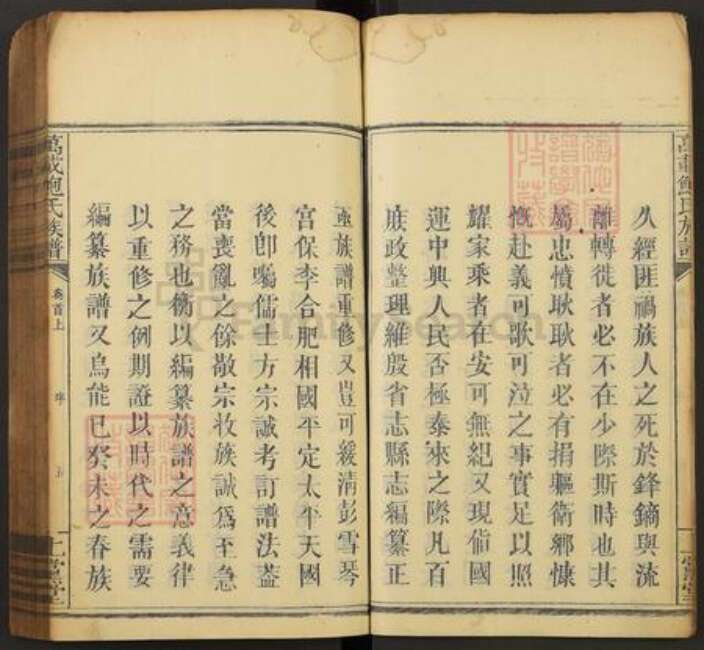 久經匪禍族人之死於鋒鏑與流
離轉徙者必不在少際斯時也其
屬忠憤耿耿者必有捐軀衛鄉慷
慨赴義可歌可泣之事實足以照
耀家乘者在安可無紀又現值國
運中興人民否極泰來之際凡百
族政整理維殷省志縣志編纂正
亟族譜重修又豈可緩清彭雪琴
宮保李合肥相國平定太平天國
後卽囑儒士方宗誠考訂譜法蓋
當喪亂之餘敬宗收族誠爲至急
之務也衡以編纂族譜之意義律
以重修之例期證以時代之需要
編纂族譜又烏能已癸未之春族
萬載鮑氏族譜
卷首上
序
上黨堂
萬載鮑氏族譜
上黨堂
FamilySearch